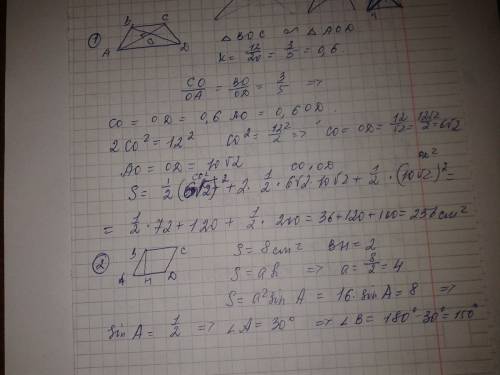 1 B C A D O
△BOC ∾ △AOD
k = 12/20 = 3/5 = 0,6
CO/OA = BO/OD = 3/5 =>
CO = OD = 0,6 AO = 0,6 OD.
2CO² = 12² CO² = 12²/2 => CO = OD = 12/√2 = 12√2/2 = 6√2
AO = OD = 10√2
CO² CO·OD OD²
S = 1/2 (6√2)² + 2 · 1/2 · 6√2 · 10√2 + 1/2 · (10√2)² =
= 1/2 · 72 + 120 + 1/2 · 200 = 36 + 120 + 100 = 256 см²
2 B C A H D
S = 8 см² BH = 2
S = ah => a = 8/2 = 4
S = a² sin A = 16 · sin A = 8 =>
sin A = 1/2 => ∠A = 30° => ∠B = 180° - 30° = 150°